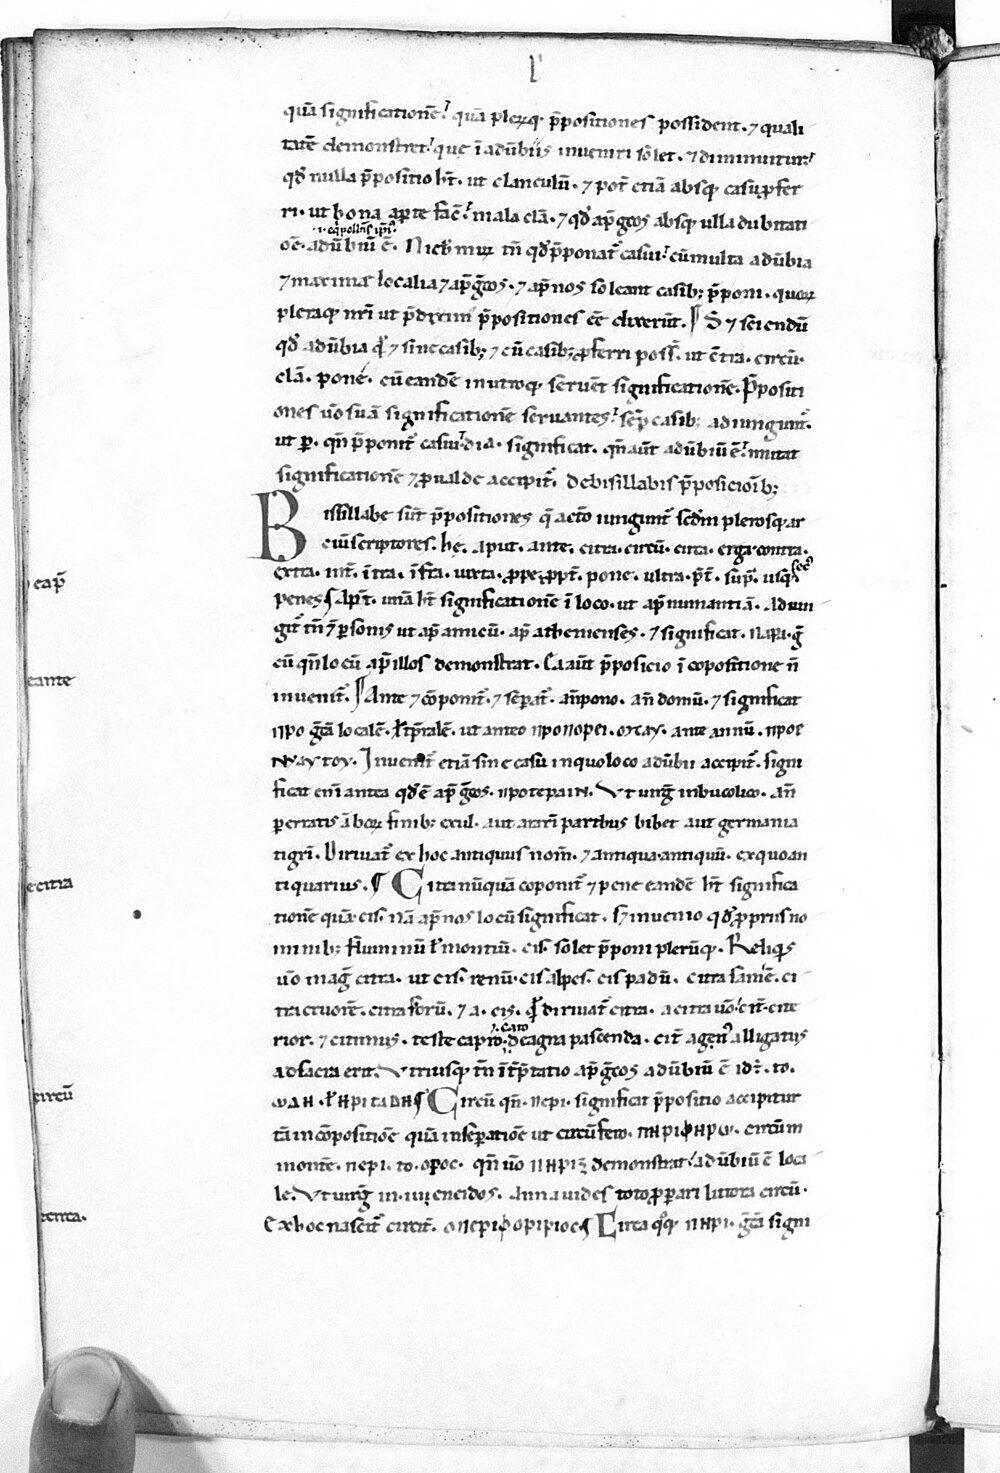 quā significationē quā plerūq; p̄positiones possident. ⁊ quali
tatē demonstret. que ī adūbiis inveniri solet. ⁊ diminuitur
qd̄ nulla p̄positio ht̄. ut clanculū. ⁊ pot̄ etiā absq; casu ꝓfer
ri. ut bona aparte fac̄. mala clā. ⁊ qd̄ ap̄ grecos absq; ulla dubitati
oē. adūbiū ē. Nich mirū tn̄ qd̄ p̄ponat̄ casui. cū multa adūbia
⁊ maxime localia ⁊ ap̄ grecos. ⁊ ap̄ nos soleant casib; p̄poni. quorum
pleraq; nr̄i ut p̄diximꝰ p̄positiones eē dixerūt. ¶ S; ⁊ sciendū
qd̄ adūbia ⁊ sine casib; ⁊ cū casib; ꝓferri poss̄. ut c̄tra. circū.
clā. pone. cū eandē in utroq; servēt significationē. P̄positi
ones ūo suā significationē servantes semp̄ casib; adiungunt̄.
ut ꝑ. qn̄ p̄ponit̄ casui. dia. significat. qn̄ aūt adūbiū ē. mutat
significationē ⁊ ꝓ valde accipit̄. de bisillabis p̄posicioīb;
Bissillabe sūt p̄positiones q̄ acc̄to iungunt̄ scdm̄ plerosq; ar
ciū scriptores. he. aput. ante. citra. circū. circa. erga. contra.
extra. int̄. īt̄ra. īfra. iuxta. ꝓpe. ꝓpt̄. pone. ultra. p̄t̄. sup̄. usq; sec̄
penes ¶ Aput. unā ht̄ significationē ī loco. ut ap̄ numantiā. Adiun
git̄ tn̄ ⁊ ꝑsonis ut ap̄ amicū. ap̄ athenienses. ⁊ significat. παρα. q̄
cū qn̄ locū ap̄ illos demonstrat. Ea aūt p̄posicio ī cōpositione n̄
invenit̄. ¶ Ante ⁊ cōponit̄. ⁊ sepat̄. an̄pono. an̄ domū. ⁊ significat
προ q̄tā localē. ł tp̄ralē. ut anteo προπορει. ante annū.
Invenit̄ etiā sine casu in quo loco adūbii accipit̄. signi
ficat eni antea qd̄ ē ap̄ grecos. προτεραιν. Ut virḡ in bucolico. an̄
perratis āborum finib; exul. aut ararī parthus bibet aut germania
tigrī. Dirivat̄ ex hoc antiquus nom̄. ⁊ antiqua antiquū. ex quo an
tiquarius. ¶ Citra nūquā coponit̄ ⁊ pene eandē ht̄ significa
tionē quā. cis. nā ap̄ nos locū significat. s; invenio qd̄ ꝓpriis no
minib; fluminū ł montiū. cis. solet p̄poni plerūq;. Reliquis
ūo mag̅ citra. ut cis. renū. cis alpes. cis padū. citra samē. ci
tra cruorē. citra forū. ⁊ a. cis. dirivat̄ citra. a citra ūo cit̄. cite
rior. ⁊ citimus. teste capro. de agna pascenda. cit̄ agen̄ alligatus
ad sacra erit. Utriusq; tn̄ int̄p̄tatio ap̄ grecos adūbiū ē
Circū qn̄. περι. significat p̄positio accipitur
tā in cōpositionē quā in sepationē ut circūfero. circūm
montē. περι. το. ορος. qn̄ ūo demonstrat adūbiū ē loca
le. Ut virḡ in. iiii eneidos. Anna vides toto ꝓperari littora circū.
Ex hoc nascit̄ circit̄. ¶ Circa quoq; περι. q̄tā signi
eap̄
eante
ecitra
circū
ecirca.